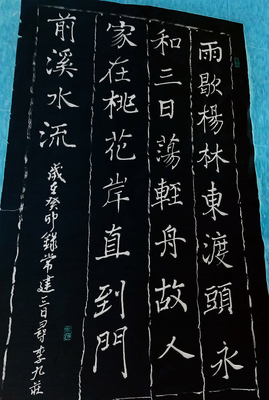 雨歇楊林東渡頭永
和三日蕩輕舟故人
家在桃花岸直到門
前溪水流
歲在癸卯錄常建三日尋李九莊